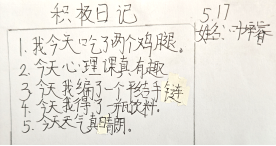 积极日记
5.17
姓名:叶
1.我今天吃了两个鸡腿。
2.今天心理课真有趣
3.今天我编了一个平结手链
4.今天我得了一瓶饮料.
5.今天天气真晴朗。